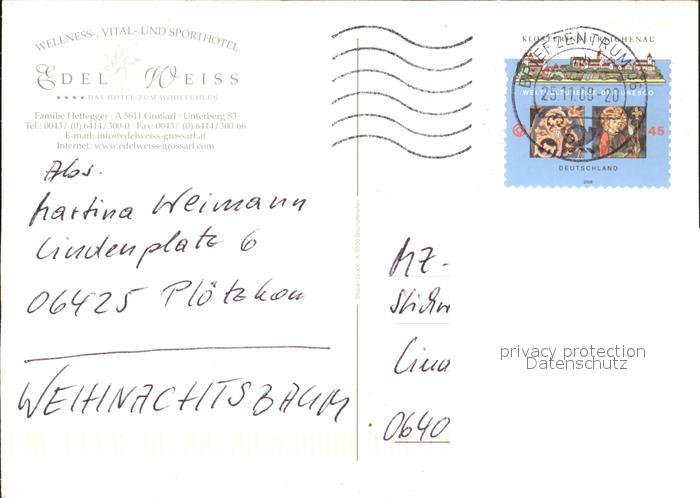 WELLNESS-, VITAL- UND SPORTHOTEL
EDEL WEISS
★★★★ DAS HOTEL ZUM WOHLFÜHLEN
Familie Hettegger · A 5611 Großarl · Unterberg 83
Tel.: 0043/ (0) 6414/300-0 · Fax: 0043/ (0) 6414/300-66
E-mail: info@edelweiss-grossarl.at
Internet: www.edelweiss-grossarl.com
Abs.
Martina Weimann
Lindenplatz 6
06425 Plötzkau
WEIHNACHTSBAUM
KLOSTERINSEL REICHENAU
BRIEFZENTRUM 06
25.11.08-20
WELTKULTURERBE DER UNESCO
45
DEUTSCHLAND
2008
MZ-
Stichw
Lina
0640
privacy protection
Datenschutz